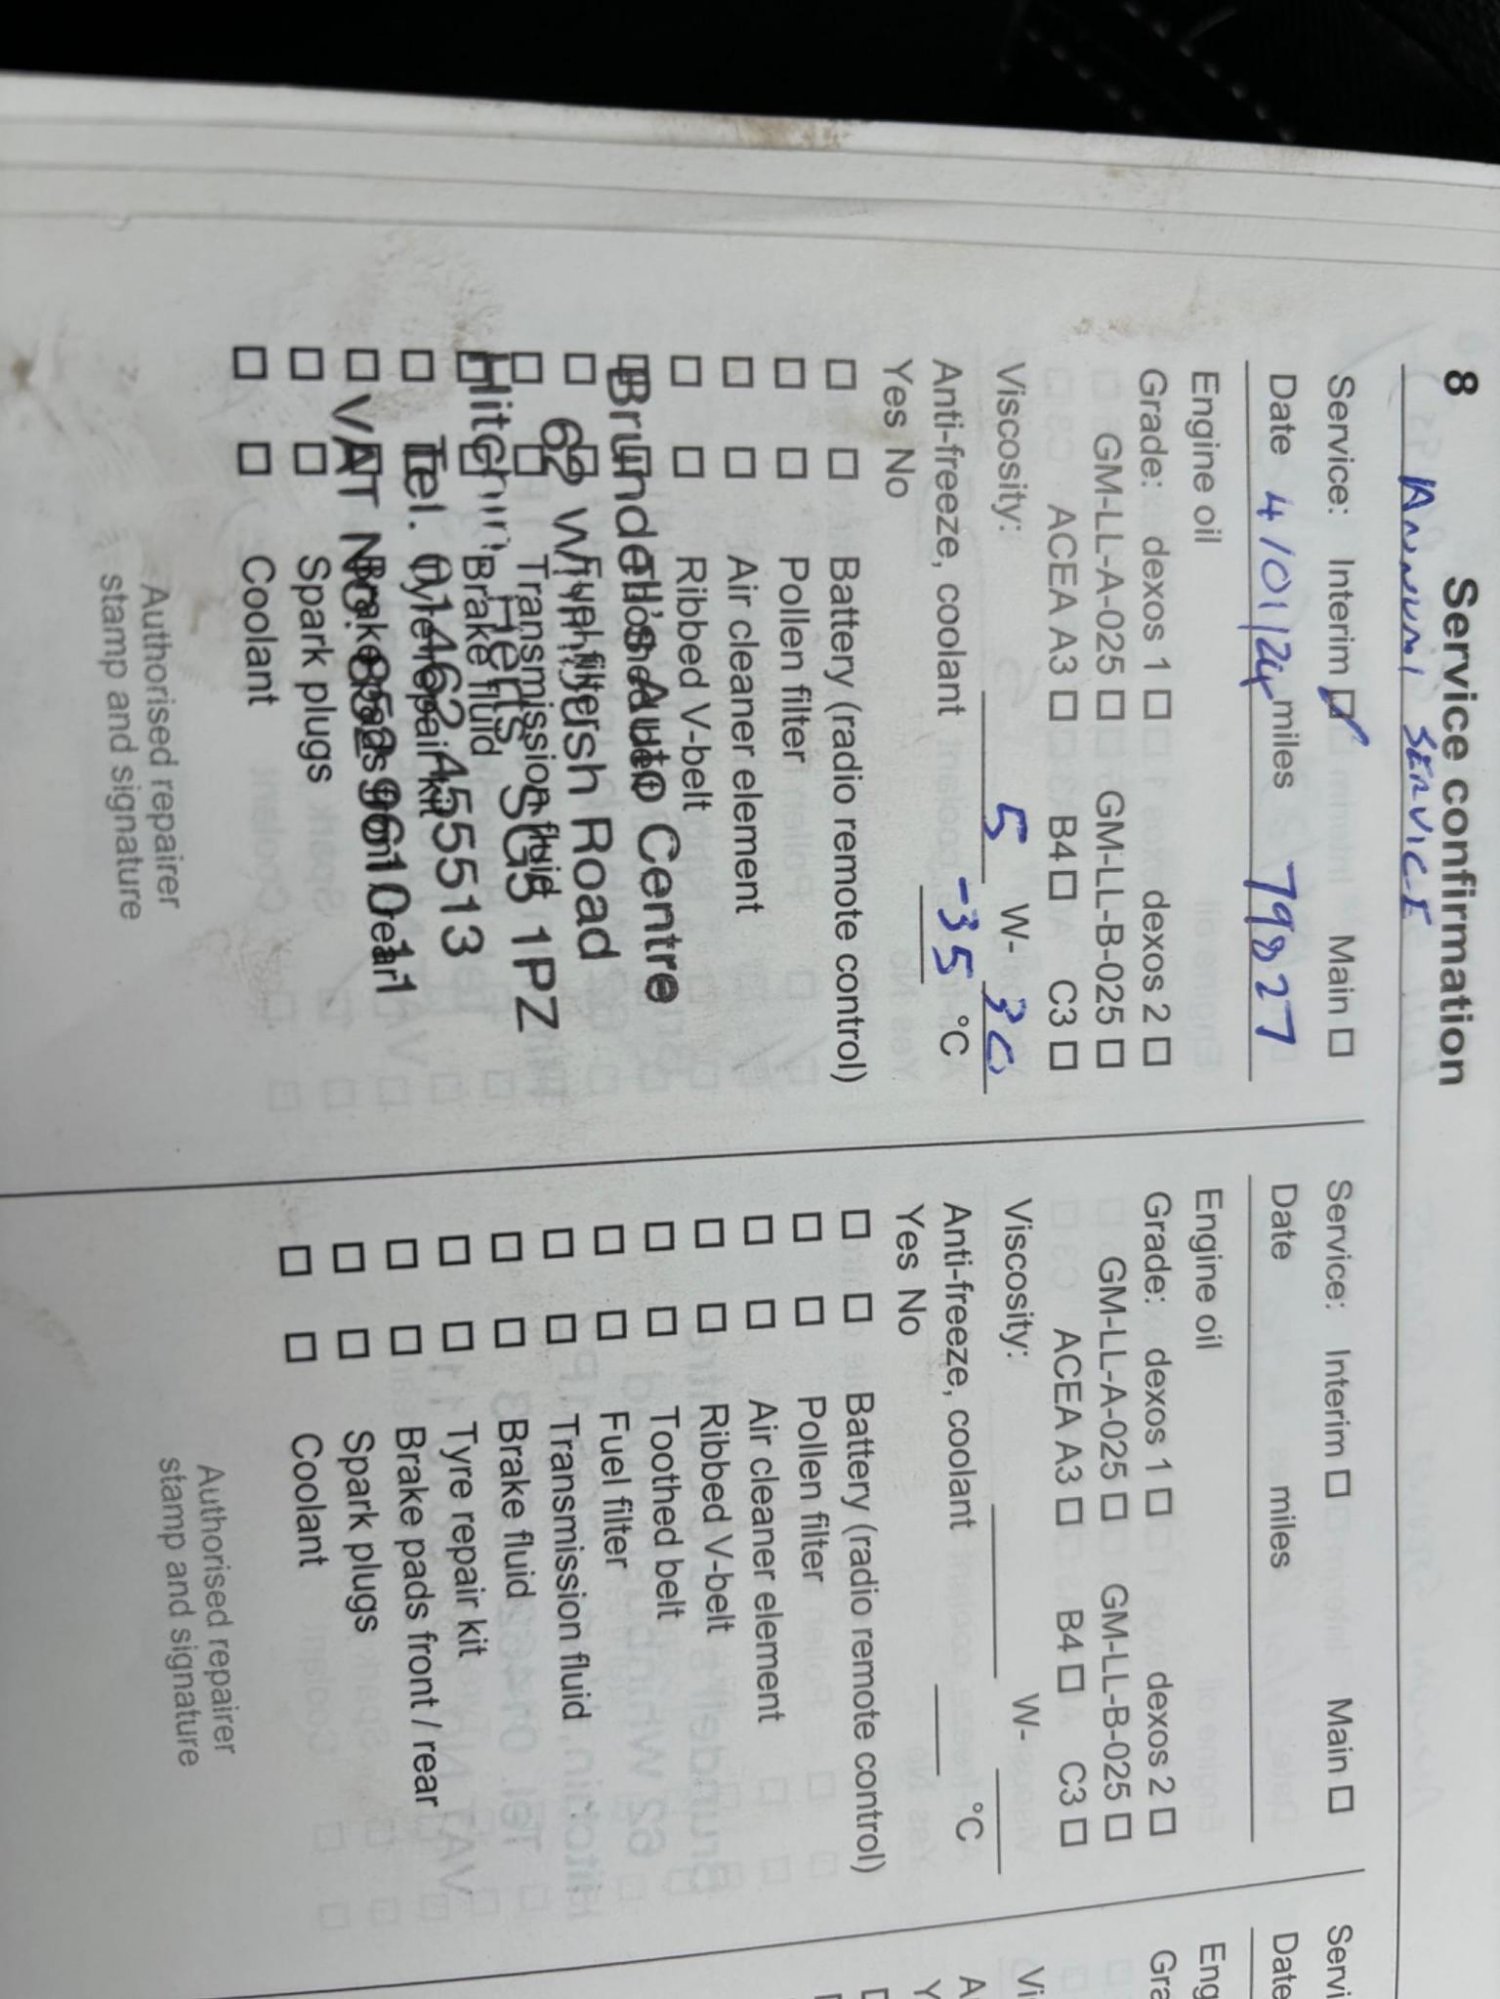 8 Service confirmation
ANNUAL SERVICE
Service: Interim ☑ Main ☐
Date 4/01/24 miles 79827
Engine oil
Grade: dexos 1 ☐ dexos 2 ☐
GM-LL-A-025 ☐ GM-LL-B-025 ☐
ACEA A3 ☐ B4 ☐ C3 ☐
Viscosity: 5 W- 30
Anti-freeze, coolant -35 °C
Yes No
☐ ☐ Battery (radio remote control)
☐ ☐ Pollen filter
☐ ☐ Air cleaner element
☐ ☐ Ribbed V-belt
☐ ☐ Toothed belt
☐ ☐ Fuel filter
☐ ☐ Transmission fluid
☐ ☐ Brake fluid
☐ ☐ Tyre repair kit
☐ ☐ Brake pads front / rear
☐ ☐ Spark plugs
☐ ☐ Coolant
Brundell's Auto Centre
62 Whinbush Road
Hitchin, Herts SG5 1PZ
Tel. 01462 455513
VAT No. 852 9610 11
Authorised repairer
stamp and signature
Service: Interim ☐ Main ☐
Date miles
Engine oil
Grade: dexos 1 ☐ dexos 2 ☐
GM-LL-A-025 ☐ GM-LL-B-025 ☐
ACEA A3 ☐ B4 ☐ C3 ☐
Viscosity: W-
Anti-freeze, coolant °C
Yes No
☐ ☐ Battery (radio remote control)
☐ ☐ Pollen filter
☐ ☐ Air cleaner element
☐ ☐ Ribbed V-belt
☐ ☐ Toothed belt
☐ ☐ Fuel filter
☐ ☐ Transmission fluid
☐ ☐ Brake fluid
☐ ☐ Tyre repair kit
☐ ☐ Brake pads front / rear
☐ ☐ Spark plugs
☐ ☐ Coolant
Authorised repairer
stamp and signature
Servi
Date
Eng
Gra
Vi
A
Y